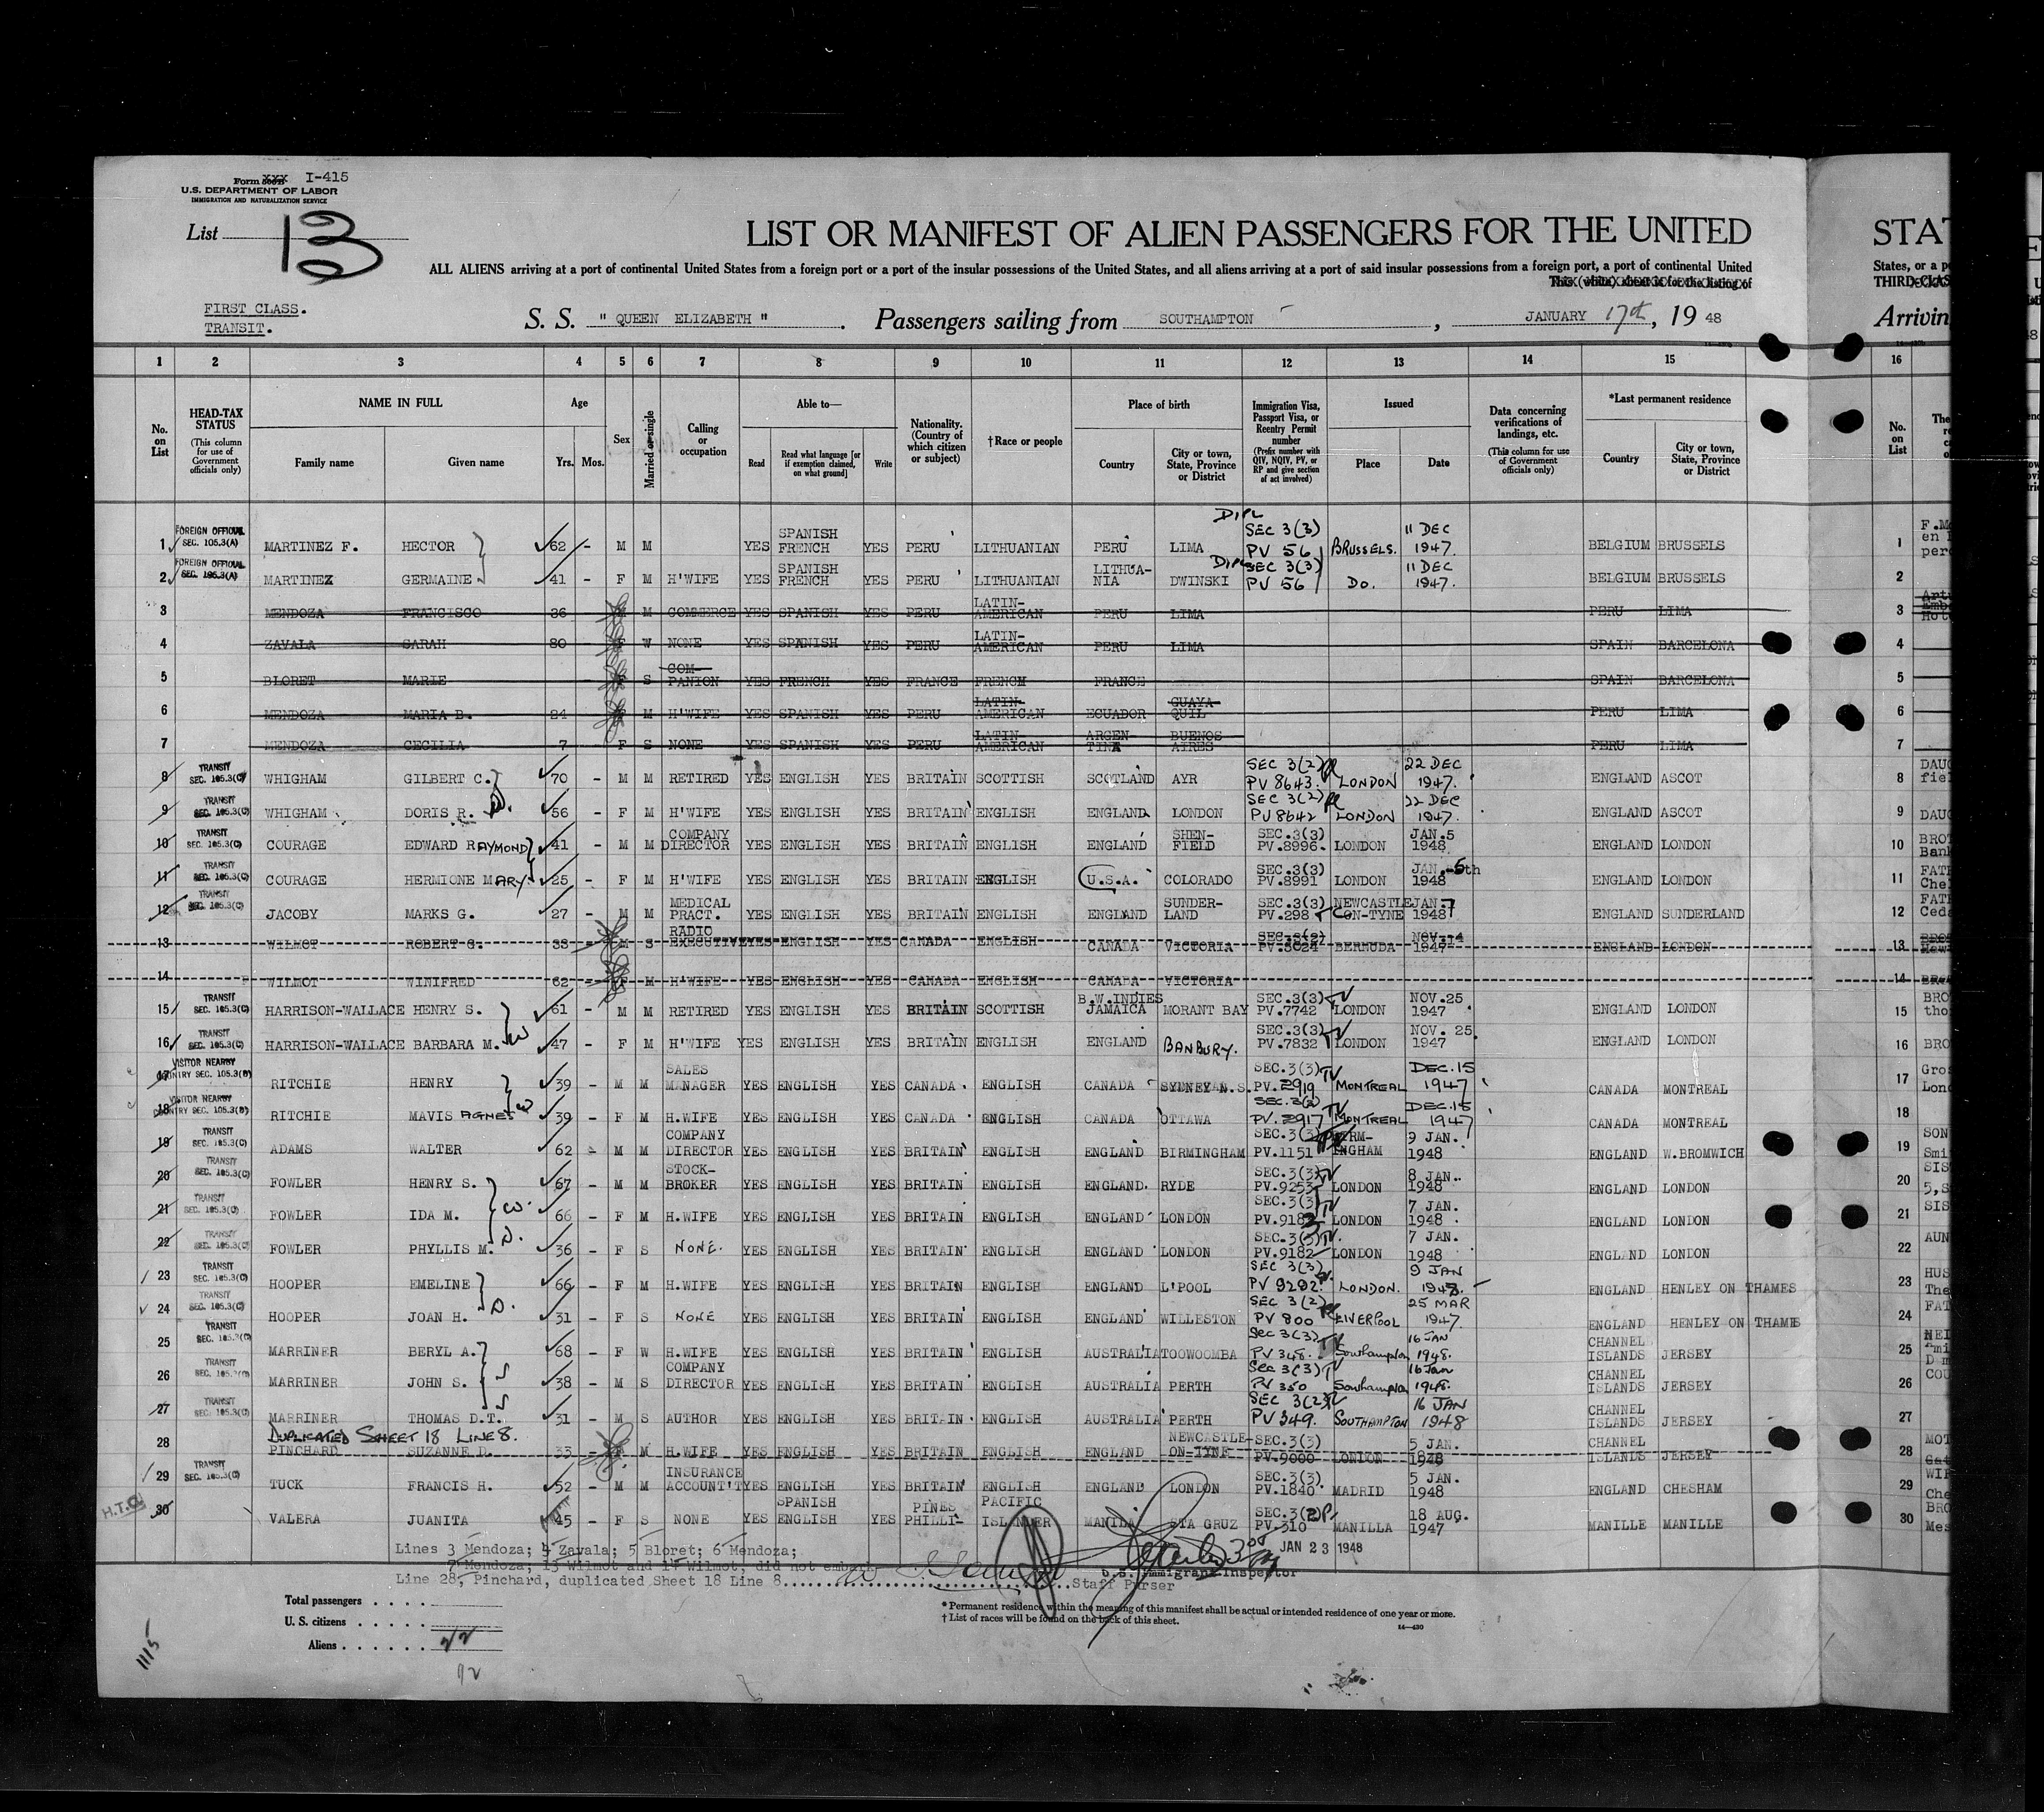 Form XXX I-415
U.S. DEPARTMENT OF LABOR
IMMIGRATION AND NATURALIZATION SERVICE
List 13
LIST OR MANIFEST OF ALIEN PASSENGERS FOR THE UNITED
STAT
ALL ALIENS arriving at a port of continental United States from a foreign port or a port of the insular possessions of the United States, and all aliens arriving at a port of said insular possessions from a foreign port, a port of continental United
States, or a po
This (white) sheet is for the listing of
THIRD-CLAS
FIRST CLASS.
TRANSIT.
S. S. " QUEEN ELIZABETH " . Passengers sailing from SOUTHAMPTON , JANUARY 17th, 19 48
Arrivin
1 2 3 4 5 6 7 8 9 10 11 12 13 14 15 16
No. on List
HEAD-TAX STATUS (This column for use of Government officials only)
NAME IN FULL Family name Given name
Age Yrs. Mos.
Sex
Married or single
Calling or occupation
Able to— Read Read what language [or if exemption claimed, on what ground] Write
Nationality. (Country of which citizen or subject)
† Race or people
Place of birth Country City or town, State, Province or District
Immigration Visa, Passport Visa, or Reentry Permit number (Prefix number with QIV, NQIV, PV, or RP and give section of act involved)
Issued Place Date
Data concerning verifications of landings, etc. (This column for use of Government officials only)
*Last permanent residence Country City or town, State, Province or District
No. on List
1 FOREIGN OFFICIAL SEC. 105.3(A) MARTINEZ F. HECTOR 62 - M M YES SPANISH FRENCH YES PERU LITHUANIAN PERU LIMA DIPL SEC 3(3) PV 56 BRUSSELS. 11 DEC 1947. BELGIUM BRUSSELS 1
2 FOREIGN OFFICIAL SEC. 105.3(A) MARTINEZ GERMAINE 41 - F M H'WIFE YES SPANISH FRENCH YES PERU LITHUANIAN LITHUA-NIA DWINSKI DIPL SEC 3(3) PV 56 Do. 11 DEC 1947. BELGIUM BRUSSELS 2
3 MENDOZA FRANCISCO 36 M M COMMERCE YES SPANISH YES PERU LATIN-AMERICAN PERU LIMA PERU LIMA 3
4 ZAVALA SARAH 80 F W NONE YES SPANISH YES PERU LATIN-AMERICAN PERU LIMA SPAIN BARCELONA 4
5 BLORET MARIE F S COM-PANION YES FRENCH YES FRANCE FRENCH FRANCE SPAIN BARCELONA 5
6 MENDOZA MARIA B. 24 F M H'WIFE YES SPANISH YES PERU LATIN-AMERICAN ECUADOR GUAYA-QUIL PERU LIMA 6
7 MENDOZA CECILIA 7 F S NONE YES SPANISH YES PERU LATIN-AMERICAN ARGEN-TINA BUENOS AIRES PERU LIMA 7
8 TRANSIT SEC. 105.3(C) WHIGHAM GILBERT C. 70 - M M RETIRED YES ENGLISH YES BRITAIN SCOTTISH SCOTLAND AYR SEC 3(2) PV 8643. LONDON 22 DEC 1947. ENGLAND ASCOT 8
9 TRANSIT SEC. 105.3(C) WHIGHAM DORIS R. D. 56 - F M H'WIFE YES ENGLISH YES BRITAIN ENGLISH ENGLAND LONDON SEC 3(2) PV 8642 LONDON 22 DEC 1947. ENGLAND ASCOT 9
10 TRANSIT SEC. 105.3(C) COURAGE EDWARD RAYMOND 41 - M M COMPANY DIRECTOR YES ENGLISH YES BRITAIN ENGLISH ENGLAND SHEN-FIELD SEC.3(3) PV.8996. LONDON JAN.5 1948 ENGLAND LONDON 10
11 TRANSIT SEC. 105.3(C) COURAGE HERMIONE MARY 25 - F M H'WIFE YES ENGLISH YES BRITAIN ENGLISH U.S.A. COLORADO SEC.3(3) PV.8991 LONDON JAN. 5th 1948 ENGLAND LONDON 11
12 TRANSIT SEC. 105.3(C) JACOBY MARKS G. 27 - M M MEDICAL PRACT. YES ENGLISH YES BRITAIN ENGLISH ENGLAND SUNDER-LAND SEC.3(3) PV.298 NEWCASTLE ON-TYNE JAN.7 1948 ENGLAND SUNDERLAND 12
13 WILMOT ROBERT G. 33 - M S RADIO EXECUTIVE YES ENGLISH YES CANADA ENGLISH CANADA VICTORIA SEC.3(2) PV.3024 BERMUDA NOV.14 1947 ENGLAND LONDON 13
14 WILMOT WINIFRED 62 - F M H'WIFE YES ENGLISH YES CANADA ENGLISH CANADA VICTORIA 14
15 TRANSIT SEC. 105.3(C) HARRISON-WALLACE HENRY S. 61 - M M RETIRED YES ENGLISH YES BRITAIN SCOTTISH B.W.INDIES JAMAICA MORANT BAY SEC.3(3) PV.7742 LONDON NOV.25 1947 ENGLAND LONDON 15
16 TRANSIT SEC. 105.3(C) HARRISON-WALLACE BARBARA M. W 47 - F M H'WIFE YES ENGLISH YES BRITAIN ENGLISH ENGLAND BANBURY. SEC.3(3) PV.7832 LONDON NOV. 25 1947 ENGLAND LONDON 16
17 VISITOR NEARBY COUNTRY SEC. 105.3(B) RITCHIE HENRY 39 - M M SALES MANAGER YES ENGLISH YES CANADA. ENGLISH CANADA SYDNEY N.S. SEC.3(3) PV.2919 MONTREAL DEC.15 1947 CANADA MONTREAL 17
18 VISITOR NEARBY COUNTRY SEC. 105.3(B) RITCHIE MAVIS AGNES W 39 - F M H.WIFE YES ENGLISH YES CANADA ENGLISH CANADA OTTAWA SEC.3(3) PV.2917 MONTREAL DEC.15 1947 CANADA MONTREAL 18
19 TRANSIT SEC. 105.3(C) ADAMS WALTER 62 - M M COMPANY DIRECTOR YES ENGLISH YES BRITAIN ENGLISH ENGLAND BIRMINGHAM SEC.3(3) PV.1151 BIRM-INGHAM 9 JAN. 1948 ENGLAND W.BROMWICH 19
20 TRANSIT SEC. 105.3(C) FOWLER HENRY S. 67 - M M STOCK-BROKER YES ENGLISH YES BRITAIN ENGLISH ENGLAND. RYDE SEC.3(3) PV.9253 LONDON 8 JAN. 1948 ENGLAND LONDON 20
21 TRANSIT SEC. 105.3(C) FOWLER IDA M. W. 66 - F M H.WIFE YES ENGLISH YES BRITAIN ENGLISH ENGLAND LONDON SEC.3(3) PV.9183 LONDON 7 JAN. 1948 ENGLAND LONDON 21
22 TRANSIT SEC. 105.3(C) FOWLER PHYLLIS M. D. 36 - F S NONE. YES ENGLISH YES BRITAIN ENGLISH ENGLAND LONDON SEC.3(3) PV.9182 LONDON 7 JAN. 1948 ENGLAND LONDON 22
23 TRANSIT SEC. 105.3(C) HOOPER EMELINE 66 - F M H.WIFE YES ENGLISH YES BRITAIN ENGLISH ENGLAND L'POOL SEC 3(3) PV 9292. LONDON. 9 JAN 1948. ENGLAND HENLEY ON THAMES 23
24 TRANSIT SEC. 105.3(C) HOOPER JOAN H. D. 31 - F S NONE YES ENGLISH YES BRITAIN ENGLISH ENGLAND WILLESTON SEC 3(2) PV 800 LIVERPOOL 25 MAR 1947. ENGLAND HENLEY ON THAMES 24
25 TRANSIT SEC. 105.3(C) MARRINER BERYL A. 68 - F W H.WIFE YES ENGLISH YES BRITAIN ENGLISH AUSTRALIA TOOWOOMBA Sec 3(3) PV 348. Southampton 16 JAN 1948. CHANNEL ISLANDS JERSEY 25
26 TRANSIT SEC. 105.3(C) MARRINER JOHN S. S 38 - M S COMPANY DIRECTOR YES ENGLISH YES BRITAIN ENGLISH AUSTRALIA PERTH Sec 3(3) PV 350 Southampton 16 Jan 1948. CHANNEL ISLANDS JERSEY 26
27 TRANSIT SEC. 105.3(C) MARRINER THOMAS D.T. S 31 - M S AUTHOR YES ENGLISH YES BRITAIN ENGLISH AUSTRALIA PERTH SEC 3(2) PV 349. SOUTHAMPTON 16 JAN 1948 CHANNEL ISLANDS JERSEY 27
DUPLICATED SHEET 18 LINE 8.
28 PINCHARD SUZANNE D. 33 - F M H.WIFE YES ENGLISH YES BRITAIN ENGLISH ENGLAND NEWCASTLE-ON-TYNE SEC.3(3) PV.9000 LONDON 5 JAN. 1948 CHANNEL ISLANDS JERSEY 28
29 TRANSIT SEC. 105.3(C) TUCK FRANCIS H. 52 - M M INSURANCE ACCOUN'T YES ENGLISH YES BRITAIN ENGLISH ENGLAND LONDON SEC.3(3) PV.1840 MADRID 5 JAN. 1948 ENGLAND CHESHAM 29
H.T.C. 30 VALERA JUANITA 45 - F S NONE YES SPANISH ENGLISH YES PINES PHILLI- PACIFIC ISLANDER MANILA STA GRUZ SEC.3(2) PV.310 MANILLA 18 AUG. 1947 MANILLE MANILLE 30
Lines 3 Mendoza; 4 Zavala; 5 Bloret; 6 Mendoza;
7 Mendoza; 13 Wilmot and 14 Wilmot, did not embark
Line 28, Pinchard, duplicated Sheet 18 Line 8
Staff Purser
JAN 23 1948
U.S. Immigrant Inspector
Total passengers
U. S. citizens
Aliens 22
* Permanent residence within the meaning of this manifest shall be actual or intended residence of one year or more.
† List of races will be found on the back of this sheet.
14—430
1115